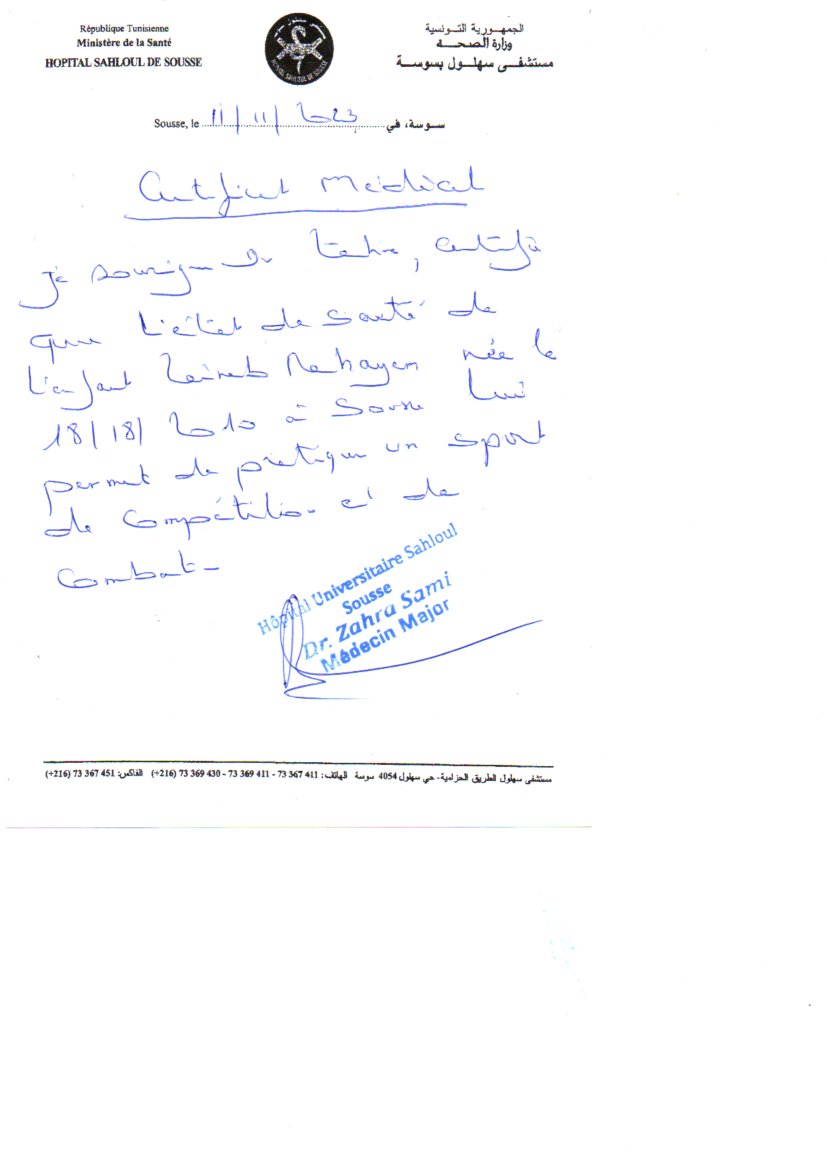 République Tunisienne
Ministère de la Santé
HOPITAL SAHLOUL DE SOUSSE
HOPITAL SAHLOUL DE SOUSSE
الجمهورية التونسية
وزارة الصحة
مستشفى سهلول بسوسة
Sousse, le 11/11/2023 سوسة، في
Certificat Médical
Je soussigné Dr Zahra, certifie
que l'état de santé de
l'enfant Zeineb née le
18/18/2010 à Sousse lui
permet de pratiquer un sport
de compétition et de
combat-
Hôpital Universitaire Sahloul
Sousse
Dr. Zahra Sami
Médecin Major
مستشفى سهلول الطريق الحزامية - حي سهلول 4054 سوسة الهاتف: 73 367 411 - 73 369 411 - 73 369 430 (216+) الفاكس: 73 367 451 (216+)